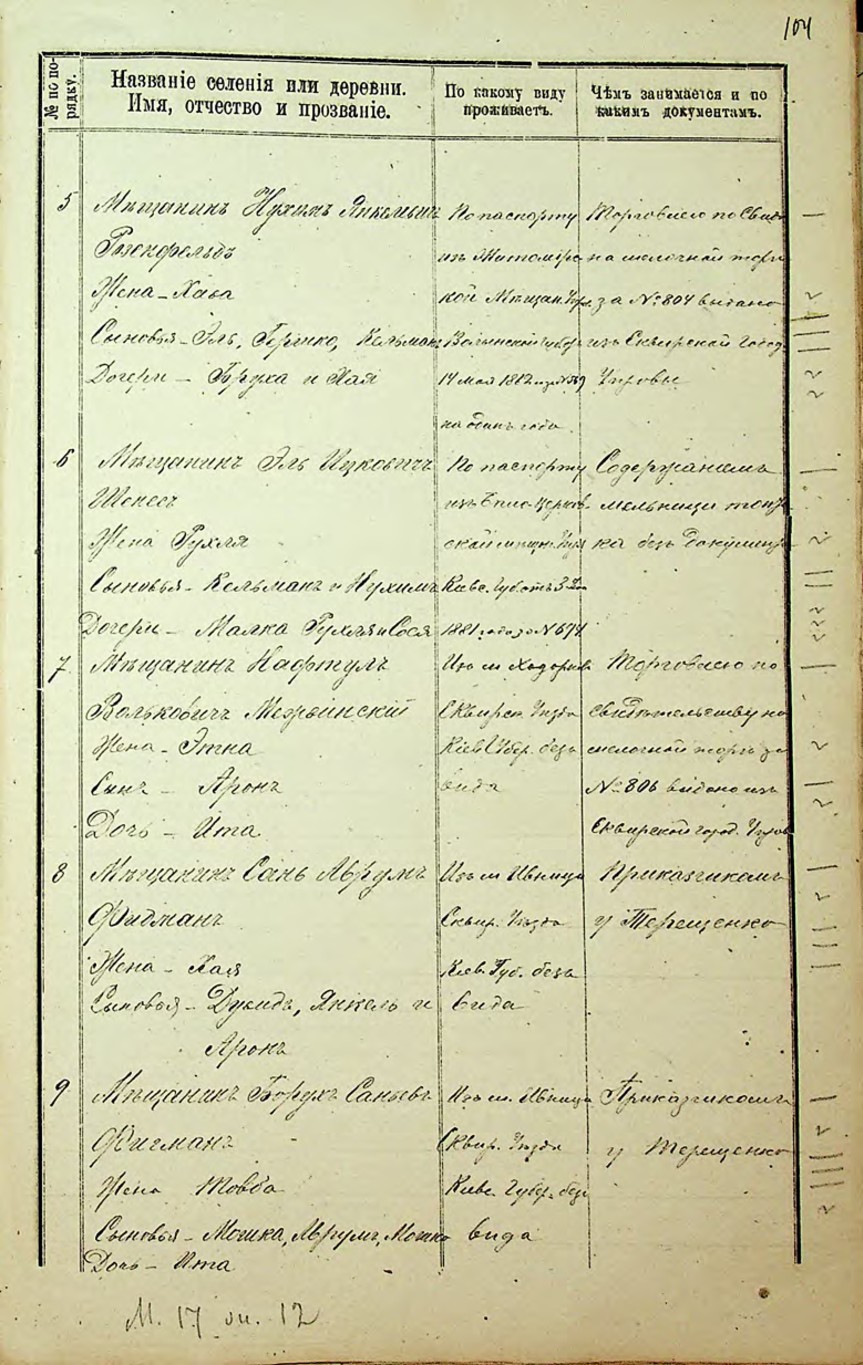 104
№ по по-
рядку.
Названіе селенія или деревни.
Имя, отчество и прозваніе.
По какому виду
проживаетъ.
Чѣмъ занимается и по
какимъ документамъ.
5
Мѣщанинъ Нухимъ Янкелевич
Розенфельдъ
Жена - Хава
Сыновья - Эль, Берко, Кельманъ
Дочери - Бруха и Хая
По паспорту
изъ Житомірс
кой Мѣщан. Упр.
Волынской Губер
14 мая 1882
на одинъ годъ
Торговлею по Свид
на мелочной торг
за № 804 выдано
изъ Сквирской Город.
Управы
6
Мѣщанинъ Эль Ицковичъ
Жена Рухля
Сыновья - Кельманъ и Нухимъ
Дочери - Малка Рухля и Сося
По паспорту
изъ Бѣло-Церков
ской мѣщан. Упр
Кіев. Губ. отъ 3
1881 года за № 674
Содержаніемъ
мельницы
безъ Документ
7
Мѣщанинъ Нафтулъ
Вольковичъ
Жена - Этна
Сынъ - Аронъ
Дочь - Ита
Изъ м Ходорков
Сквирск. Уѣзда
Кіев Губер. безъ
вида
Торговлею по
свидѣтельству на
мелочной торгъ за
№ 806 выдано изъ
Сквирской город. Управ
8
Мѣщанинъ Сань Аврумъ
Фидманъ
Жена - Хая
Сыновья - Дувидъ, Янкель и
Аронъ
Изъ м Ивница
Сквир. Уѣзда
Кіев. Губ. безъ
вида
Приказчикомъ
у Терещенко
9
Мѣщанинъ Борухъ Саньевъ
Фигманъ
Жена Товба
Сыновья - Мошка, Аврумъ, Мошко
Дочь - Ита
Изъ м. Ивница
Сквир. Уѣзда
Кіев. Губер. безъ
вида
Приказчикомъ
у Терещенко
М. 17 ж. 12